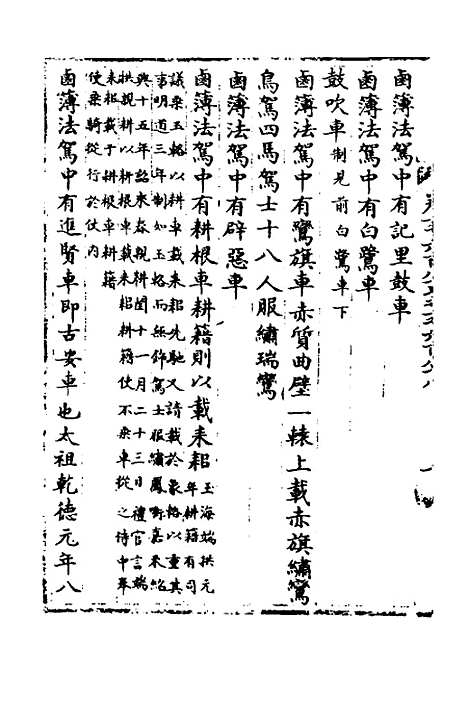 鹵簿法駕中有記里鼓車
鹵簿法駕中有白鷺車
鼓吹車制見前白鷺車下
鹵簿法駕中有鸞旗車赤質曲壁一轅上載赤旗繡鸞
鳥駕四馬駕士十八人服繡瑞鸞
鹵簿法駕中有辟惡車
鹵簿法駕中有耕根車耕藉則以載耒耜玉海端拱元
年耕籍有司
議乗玉輅以耕車載耒耜先馳又請載於象輅以重其
事明道三年制如玉輅而無飾駕士服繡鳳銜嘉禾紹
興十五年詔來春親耕閏十一月二十三日禮官言端
拱親耕以耕根車載耒耜耕籍使不乗車從之侍中奉
耒耜載于耕根車耕籍
使乗騎從行於仗内
鹵簿法駕中有進賢車即古安車也太祖乾德元年八